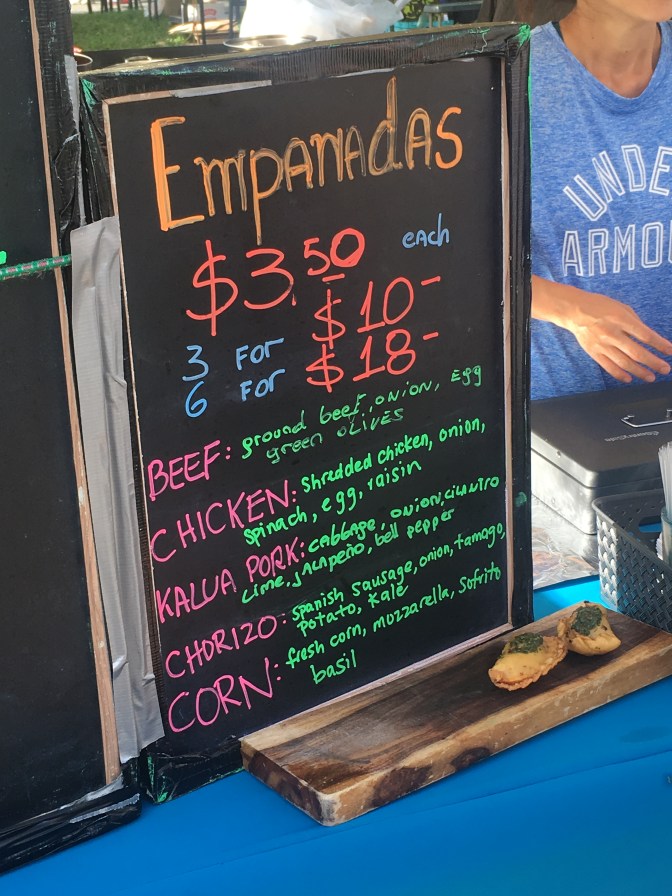 EmpanadAS
$3.50 each
3 FOR $10-
6 FOR $18-
BEEF: ground beef, onion, Egg
green oLIVES
CHICKEN: Shredded chicken, onion,
spinach, egg, raisin
KALUA PORK: cabbage, onion, cilantro
Lime, jalapeño, bell pepper
CHORIZO: spanish sausage, onion, tamago,
potato, kale
CORN: fresh corn, mozzarella, sofrito
basil
UNDE
ARMOU